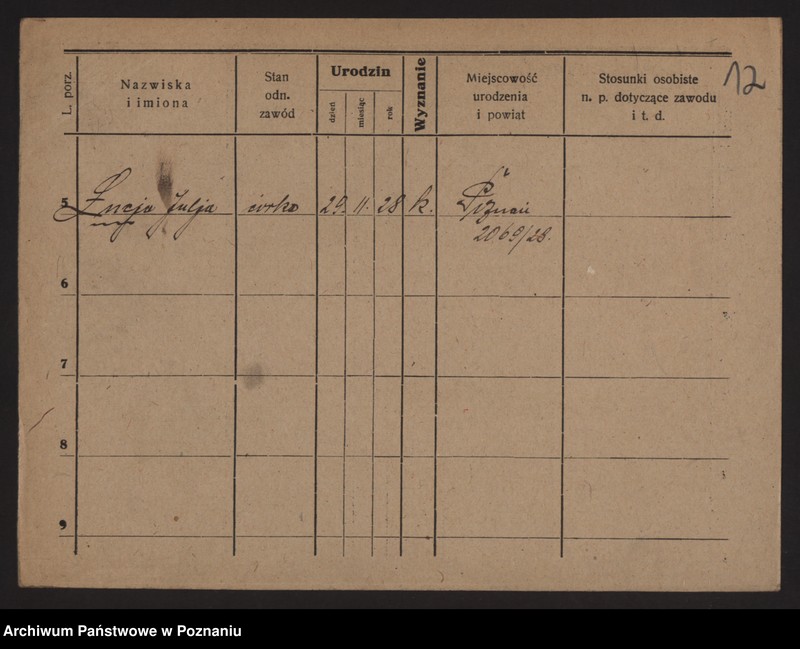 12
L. porz.
Nazwiska
i imiona
Stan
odn.
zawód
Urodzin
dzień
miesiąc
rok
Wyznanie
Miejscowość
urodzenia
i powiat
Stosunki osobiste
n. p. dotyczące zawodu
i t. d.
5 Łucja Julja córka 29. 11. 28 k. Poznań
2069/28.
6
7
8
9
Archiwum Państwowe w Poznaniu